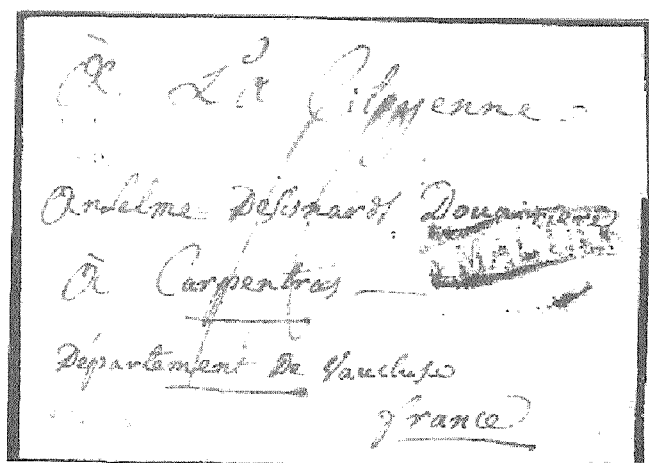 À La Citoyenne
Anselme Desinards Douairiere
À Carpentras
Département De Vaucluse
france